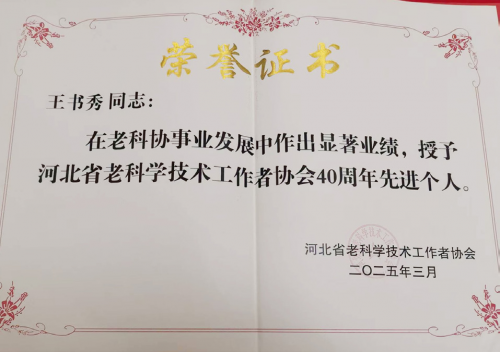 荣誉证书
王书秀同志：
在老科协事业发展中作出显著业绩，授予
河北省老科学技术工作者协会40周年先进个人。
河北省老科学技术工作者协会
二〇二五年三月